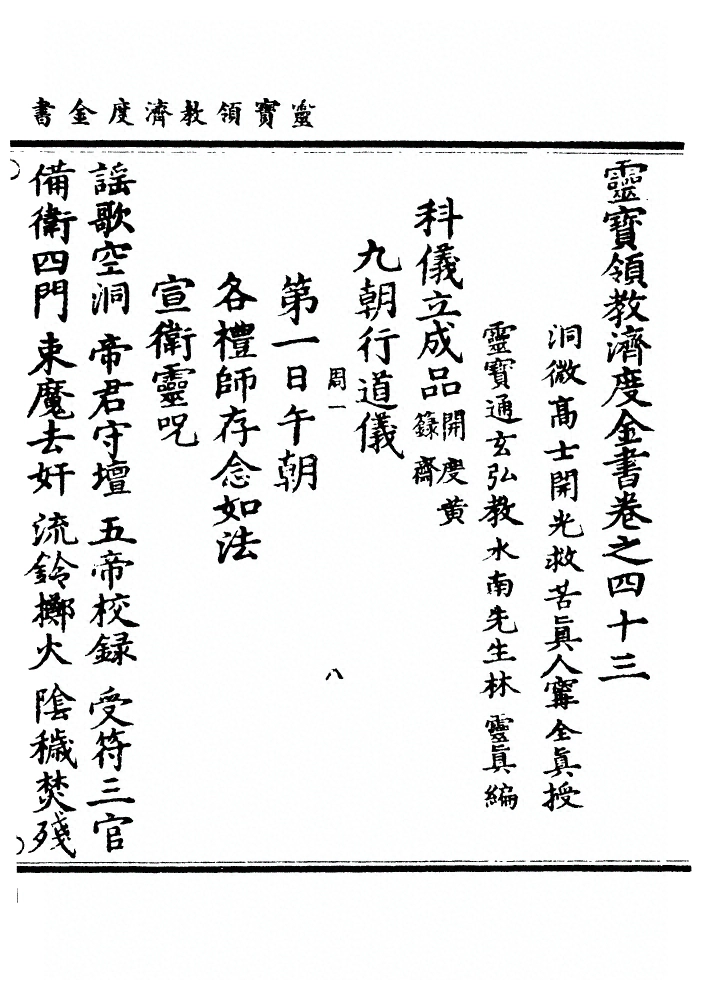 靈寶領教濟度金書
靈寶領教濟度金書卷之四十三
洞微高士開光救苦眞人寗全眞授
靈寶通玄弘教水南先生林靈眞編
科儀立成品開度黃籙齋
九朝行道儀
周一
八
第一日午朝
各禮師存念如法
宣衛靈呪
謡歌空洞 帝君守壇 五帝校録 受符三官
備衛四門 束魔去奸 流鈴擲火 陰穢焚殘